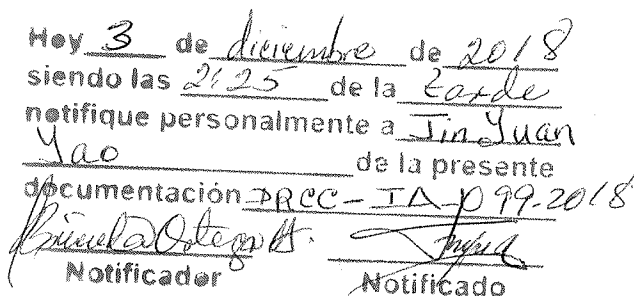 Hoy 3 de diciembre de 2018
siendo las 2:25 de la tarde
notifique personalmente a Jin Yuan
Yao de la presente
documentación DRCC-IA-099-2018
Notificador Notificado